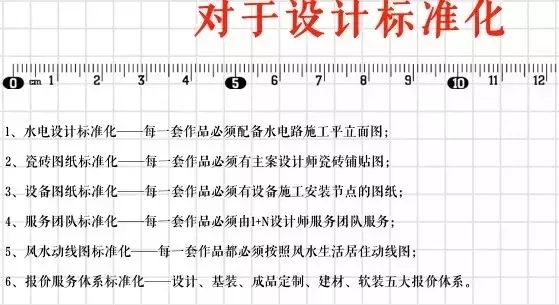 对于设计标准化
0 cm 1 2 3 4 5 6 7 8 9 10 11 12
1、水电设计标准化——每一套作品必须配备水电路施工平立面图；
2、瓷砖图纸标准化——每一套作品必须有主案设计师瓷砖铺贴图；
3、设备图纸标准化——每一套作品必须有设备施工安装节点的图纸；
4、服务团队标准化——每一套作品必须由1+N设计师服务团队服务；
5、风水动线图标准化——每一套作品都必须按照风水生活居住动线图；
6、报价服务体系标准化——设计、基装、成品定制、建材、软装五大报价体系。